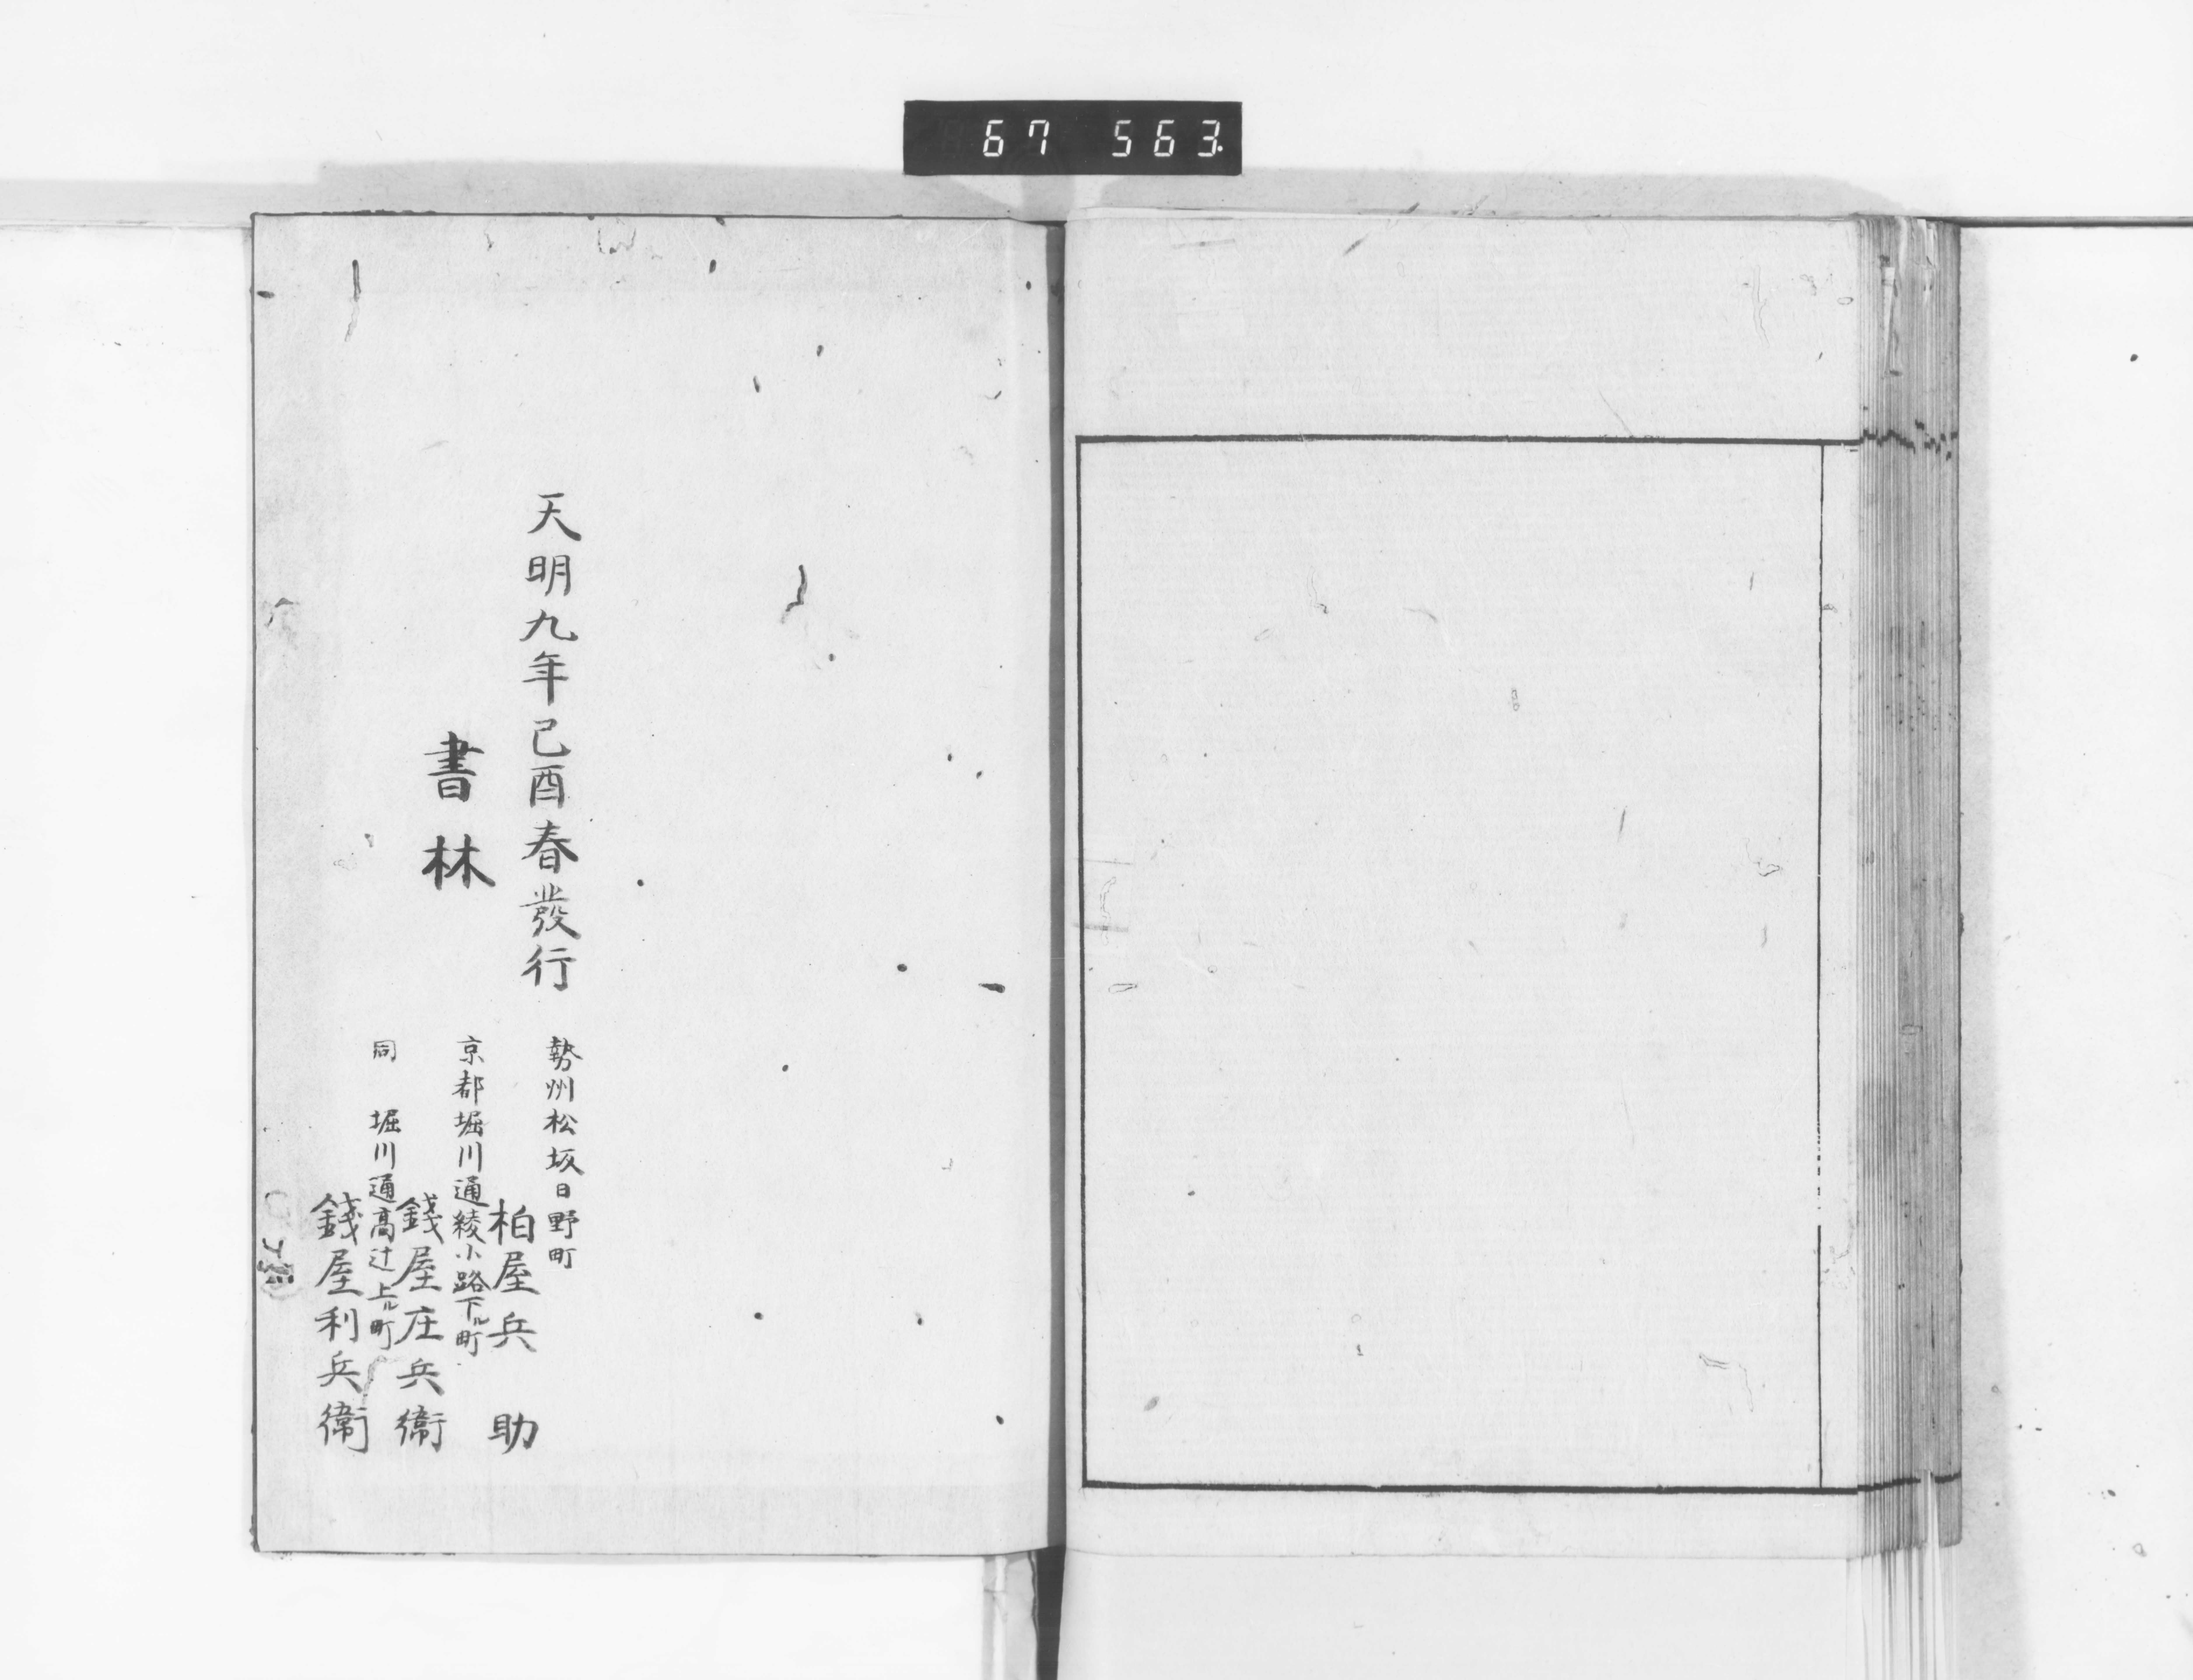 67 563.
天明九年己酉春發行
書林
勢州松坂日野町
柏屋兵助
京都堀川通綾小路下ル町
錢屋庄兵衞
同 堀川通高辻上ル町
錢屋利兵衞